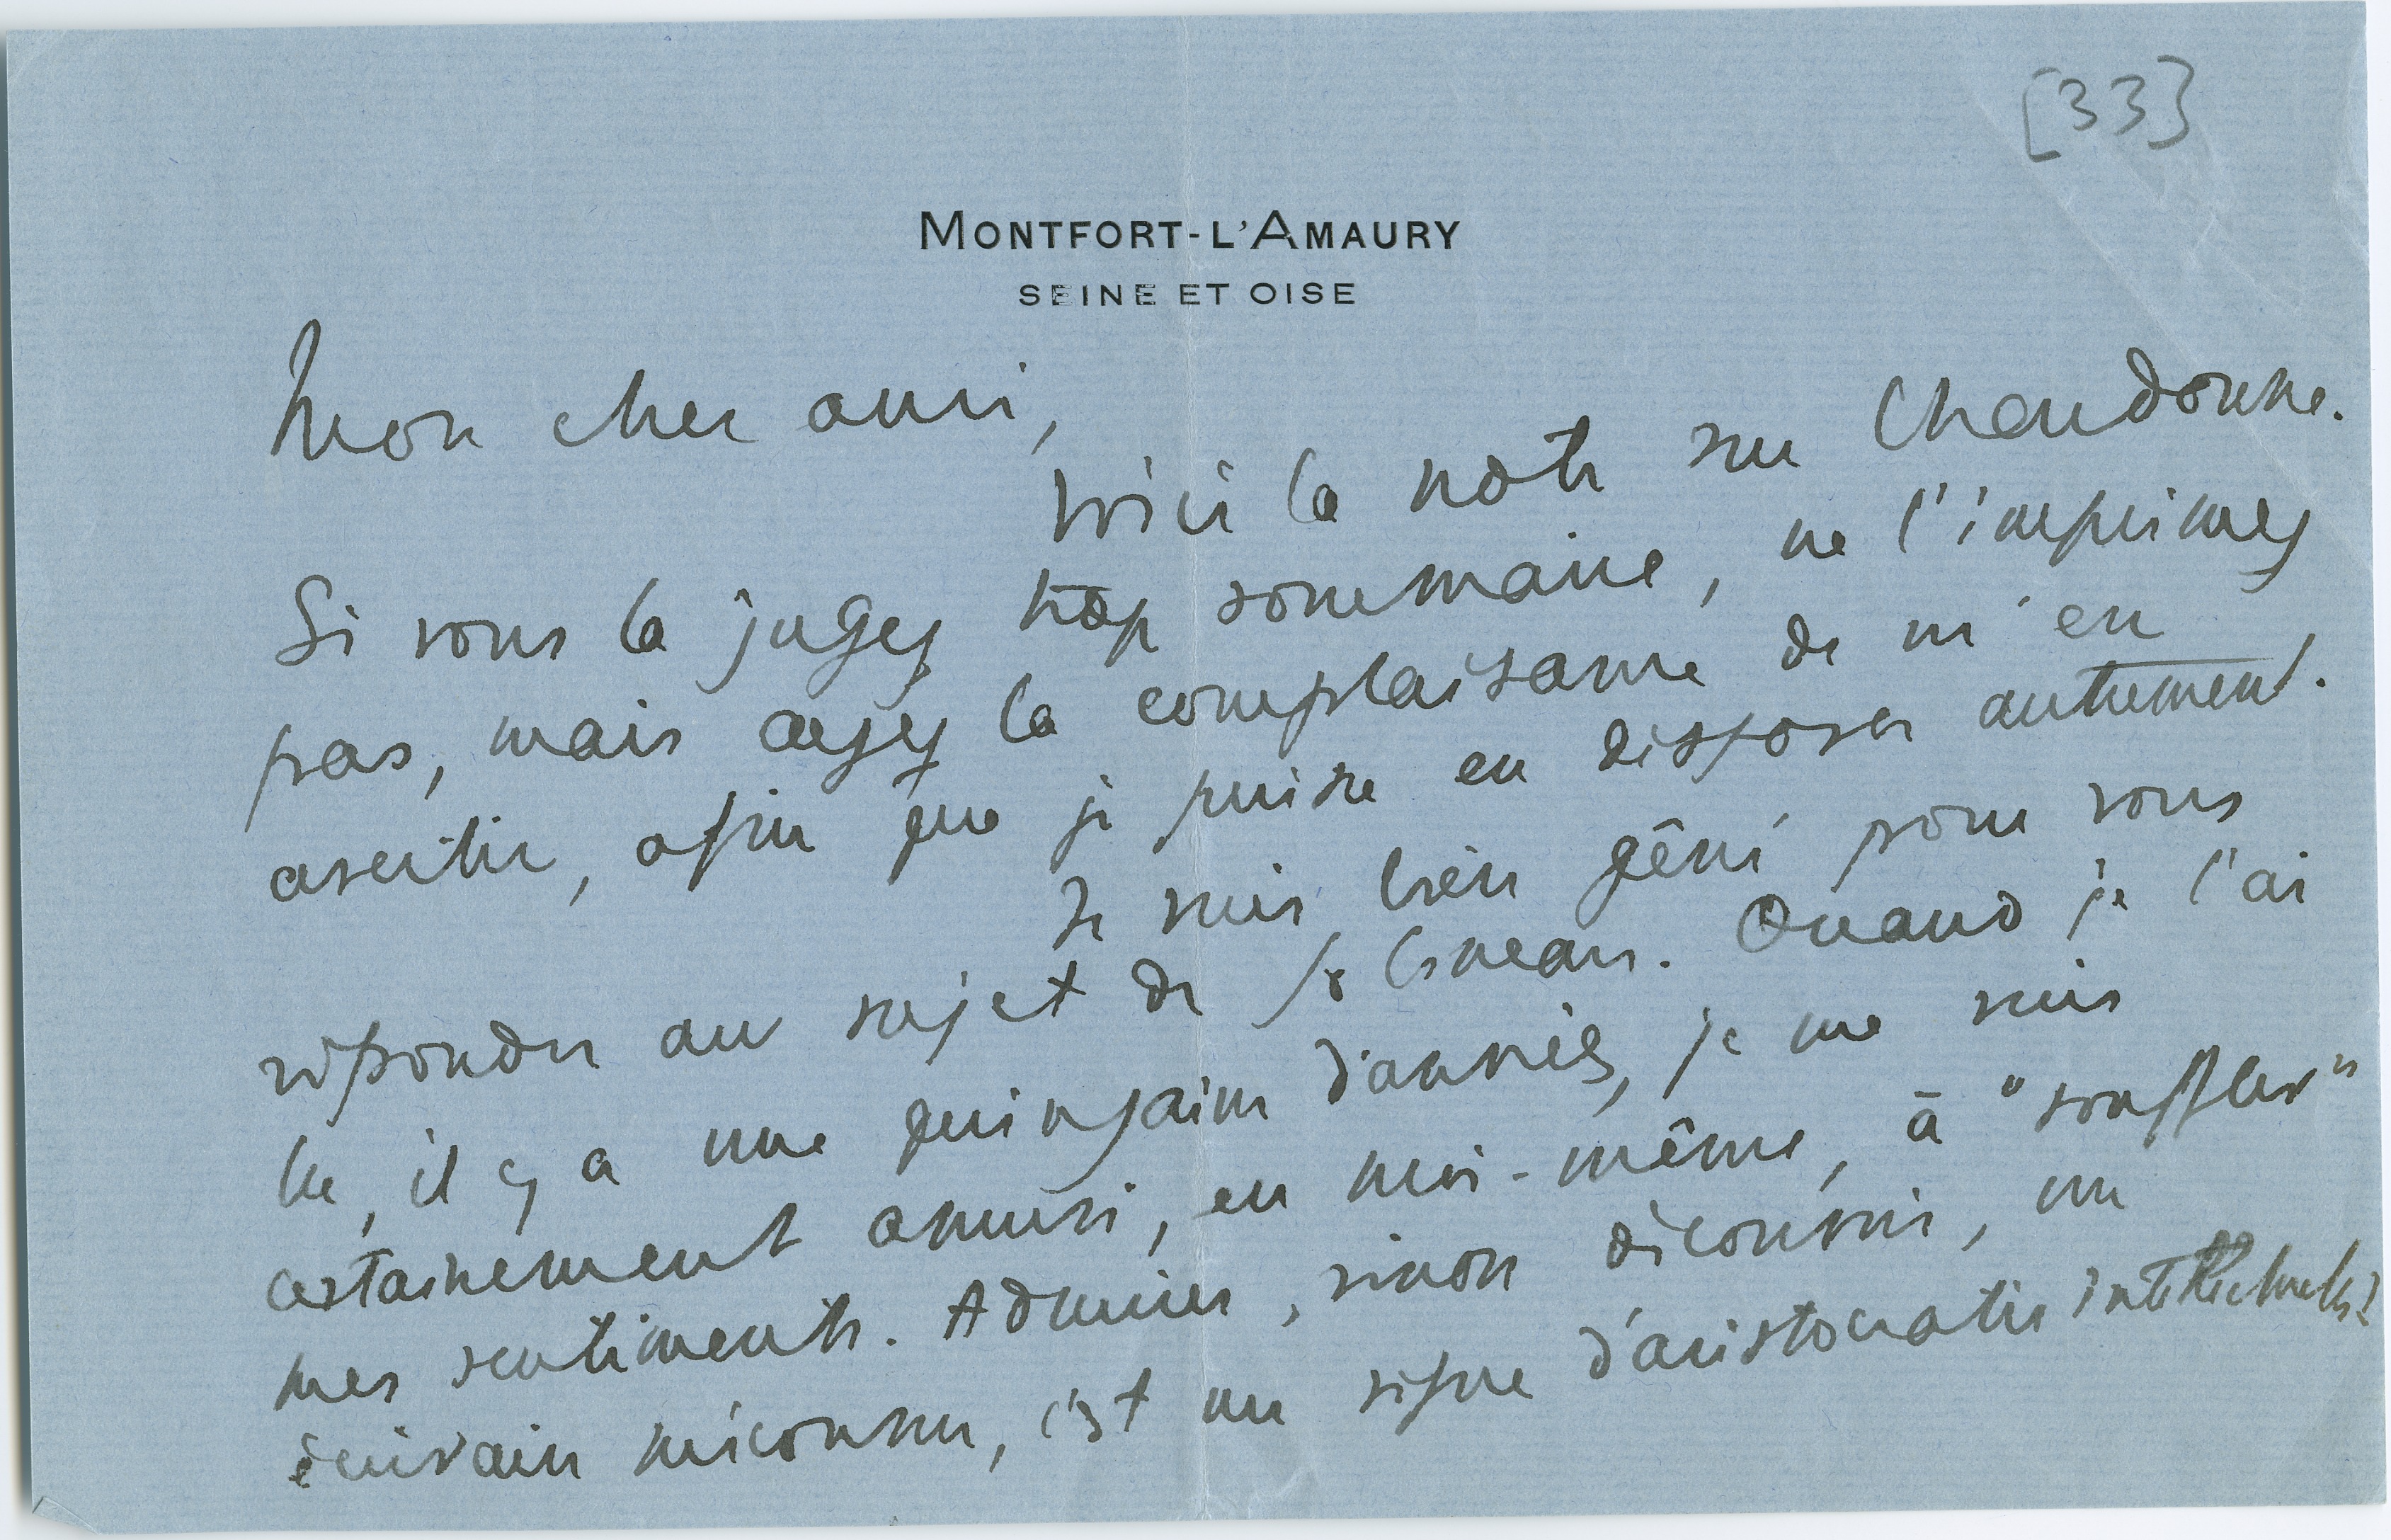 [33]
MONTFORT-L'AMAURY
SEINE ET OISE
Mon cher ami,
Voici la note sur Chardonne.
Si vous la jugez trop sommaire, ne l'imprimez
pas, mais ayez la complaisance de m'en
avertir, afin que je puisse en disposer autrement.
Je suis bien gêné pour vous
répondre au sujet de
. Quand je l'ai
lu, il y a une quinzaine d'années, je me suis
certainement amusé, en moi-même, à "souffler"
mes sentiments. Admirer, sinon découvrir, un
écrivain méconnu, c'est un signe d'aristocratie intellectuelle!